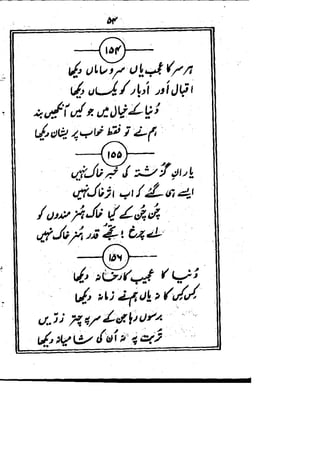 ۵۴
۱۵۴
ہر سر کا عجب یاں سر و ساماں دیکھا
اقبال اور ادبار کو یکساں دیکھا
دُنیا کے خیال میں جو کیں آنکھیں بند
ہم نے تو فقط خواب پریشاں دیکھا
۱۵۵
یارانِ گزشتہ کی خبر خاک نہیں
ایسے ہی گئے کہ اب اثر خاک نہیں
چُن چُن کے کیا خاک ہُنر مندوں کو
اے چرخ! تجھے قدرِ ہُنر خاک نہیں
۱۵۶
دُنیا کا عجیب کارخانہ دیکھا
کِس کِس کا نہ یاں ہم نے زمانہ دیکھا
برسوں رہا جن کے سر پہ چترِ زرّیں
تُربت پہ نہ اُن کی شامیانہ دیکھا